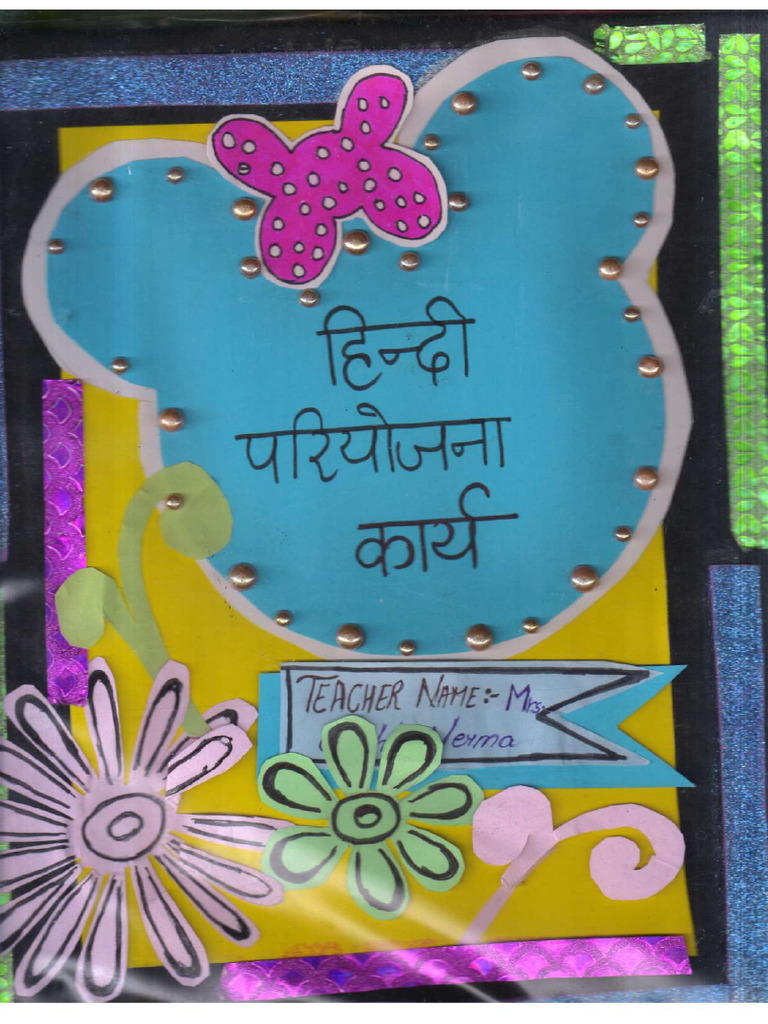 हिन्दी
परियोजना
कार्य
TEACHER NAME:- Mrs.
Verma